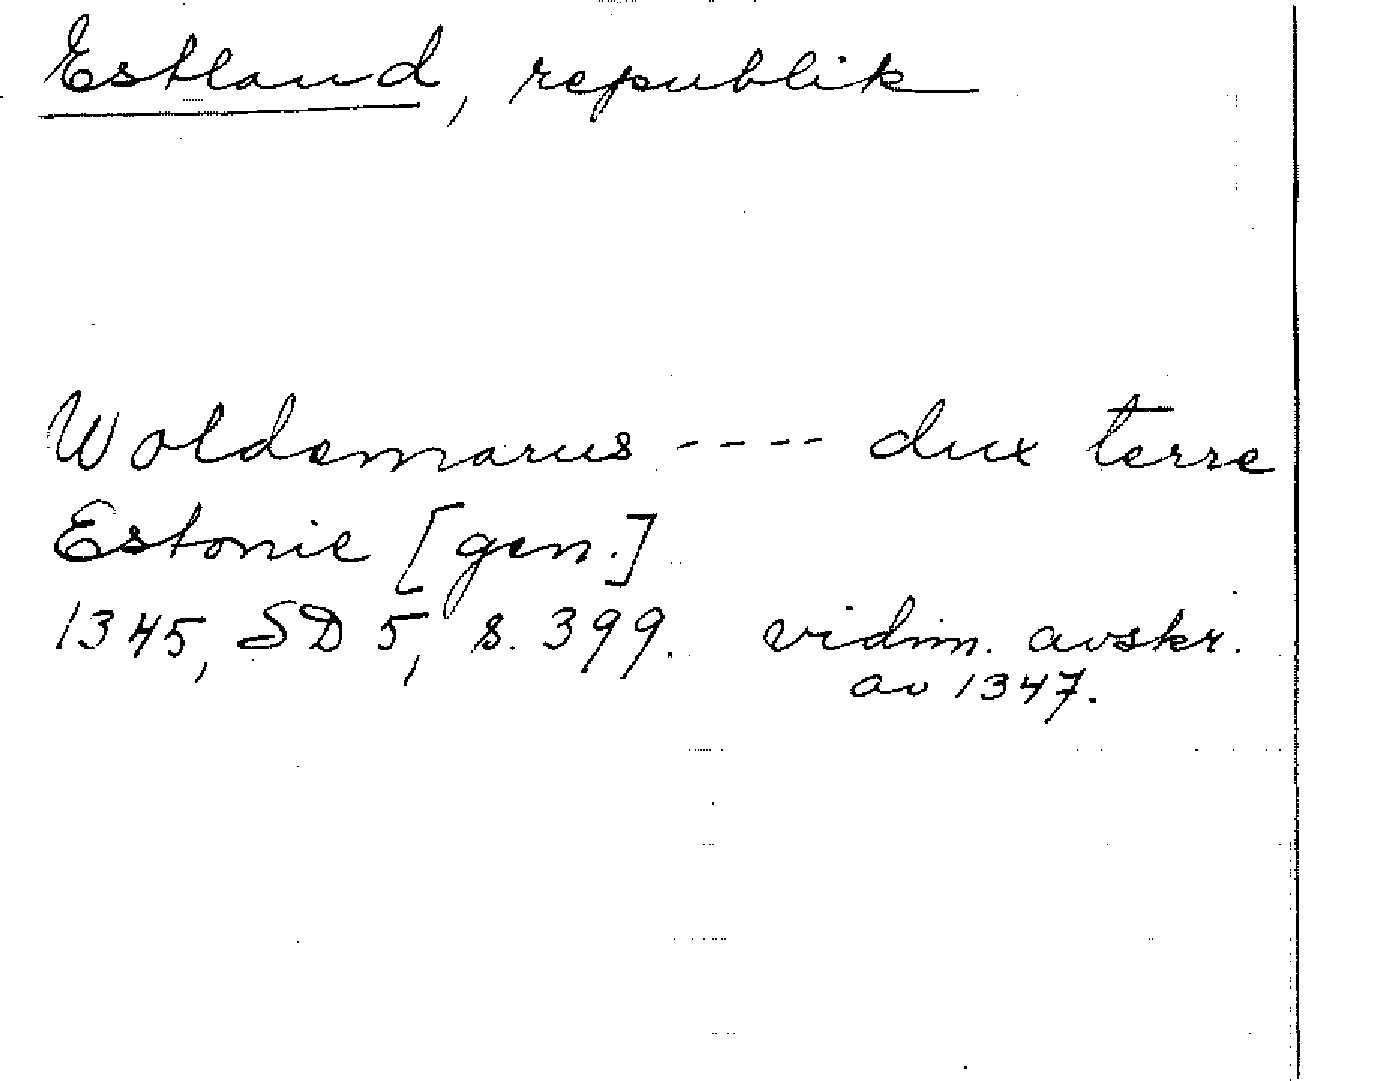 Estland, republik
Woldemarus ---- dux terre
Estonie [gen.]
1345, SD 5, s. 399. vidim. avskr.
av 1347.